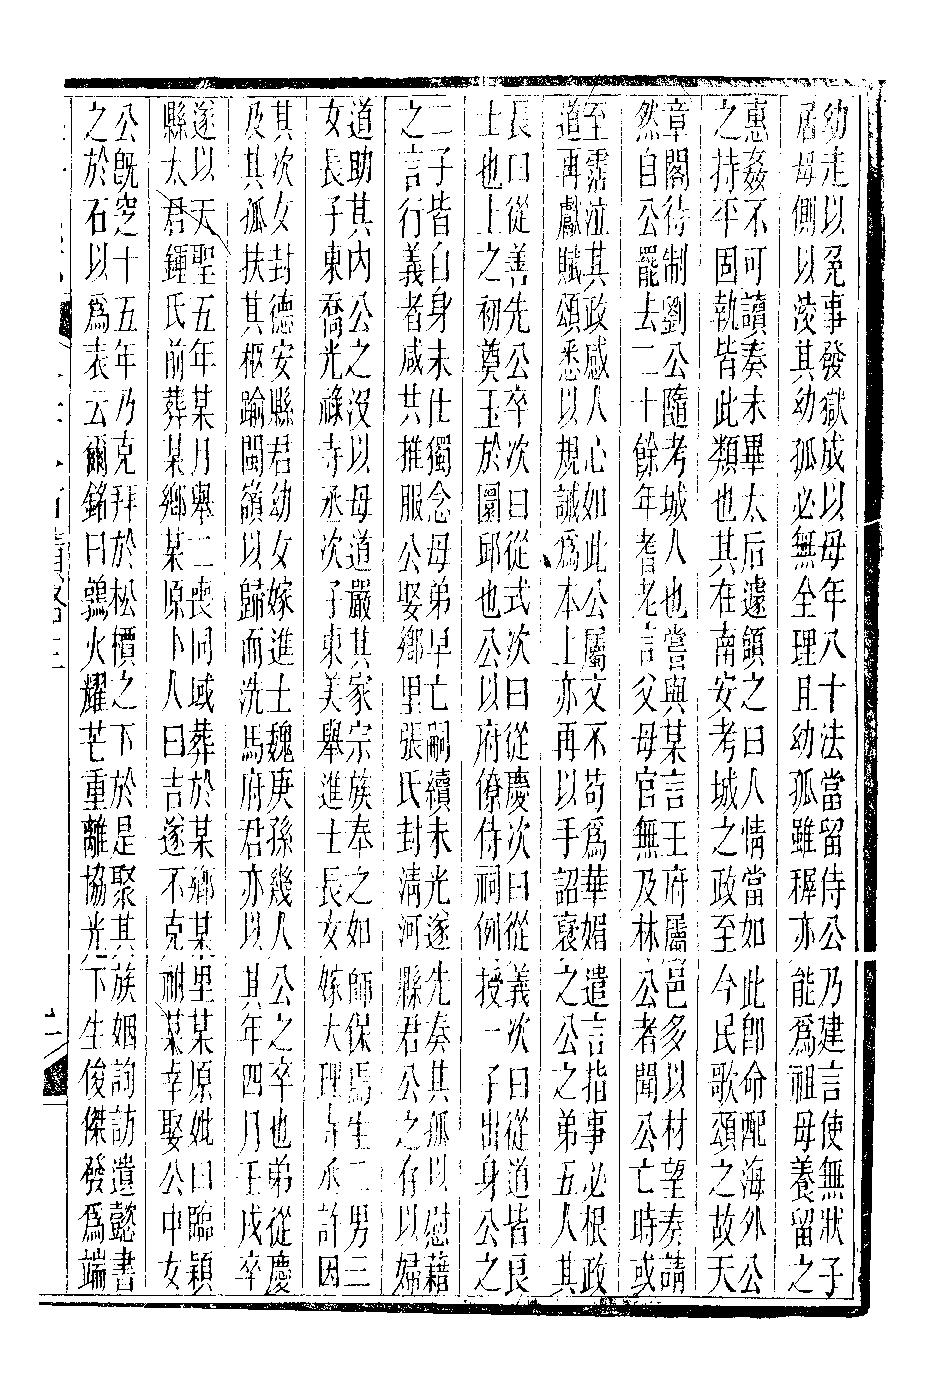 幼走以免事發獄成以母年八十法當留侍公乃建言使無狀子
居母側以淩其幼孤必無全理且幼孤雖穉亦能爲祖母養留之
惠姦不可讀奏未畢太后遽頷之曰人情當如此卽命配海外公
之持平固執皆此類也其在南安考城之政至今民歌頌之故天
章閣待制劉公隨考城人也嘗與某言王府屬邑多以材望奏請
然自公罷去二十餘年耆老言父母官無及林公者聞公亡時或
至霑泣其政感人心如此公屬文不苟爲華媚遣言指事必根政
道再獻賦頌悉以規誡爲本上亦再以手詔襃之公之弟五人其
長曰從善先公卒次曰從式次曰從慶次曰從義次曰從道皆良
士也上之初奠玉於圜邱也公以府僚侍祠例授一子出身公之
二子皆白身未仕獨念母弟早亡嗣續未光遂先奏其孤以慰藉
之言行義者咸共推服公娶鄉里張氏封清河縣君公之存以婦
道助其內公之沒以母道嚴其家宗族奉之如師保焉生二男三
女長子東喬光祿寺丞次子東美舉進士長女嫁大理寺丞許因
其次女封德安縣君幼女嫁進士魏庚孫幾人公之卒也弟從慶
及其孤扶其柩踰閩嶺以歸而洗馬府君亦以其年四月壬戌卒
遂以天聖五年某月舉二喪同域葬於某鄉某里某原妣曰臨穎
縣太君鍾氏前葬某鄉某原卜人曰吉遂不克祔某幸娶公中女
公既窆十五年乃克拜於松檟之下於是聚其族姻詢訪遺懿書
之於石以爲表云爾銘曰鶉火耀芒重離協光下生俊傑發爲端